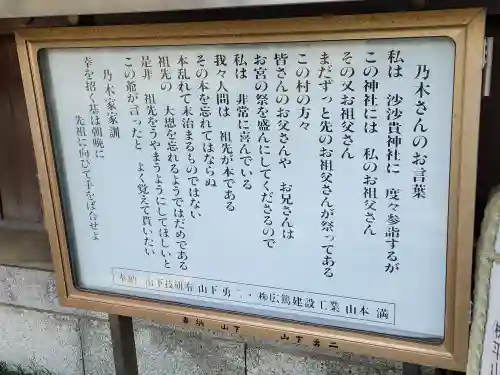 乃木さんのお言葉
私は 沙沙貴神社に 度々参詣するが
この神社には 私のお祖父さん
その又お祖父さん
まだずっと先のお祖父さんが祭ってある
この村の方々
皆さんのお父さんや お兄さんは
お宮の祭を盛んにしてくださるので
私は 非常に喜んでいる
我々人間は 祖先が本である
その本を忘れてはならぬ
本乱れて末治まるものではない
祖先の 大恩を忘れるようではだめである
是非 祖先をうやまうようにしてほしいと
この爺が言ったと よく覚えて貰いたい
乃木家家訓
幸を招く基は朝晩に
先祖に向ひて手をば合せよ
奉納 山下技研㈲ 山下 勇二 ・ ㈱広鶴建設工業 山本 満
奉納 山下 山下勇二